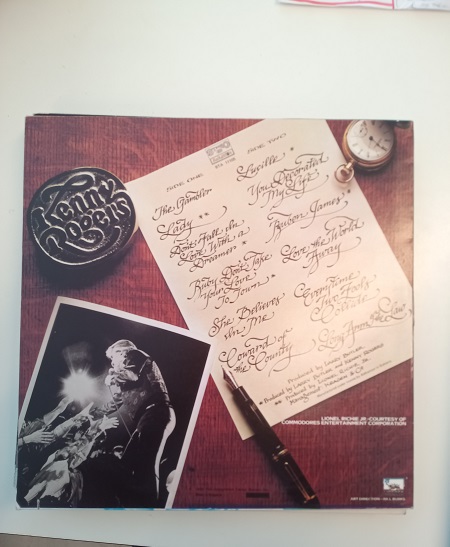 Kenny
Rogers
SIDE ONE
The Gambler
Lady **
Don't Fall In
Love With a
Dreamer *
Ruby, Don't Take
Your Love
To Town *
She Believes
In Me
Coward of
the County
SIDE TWO
Lucille *
You Decorated
My Life
Reuben James *
Love the World
Away
Everytime
Two Fools
Collide
Long Arm of the Law
Produced by Larry Butler
* Produced by Larry Butler and Kenny Rogers
** Produced by Lionel Richie Jr.
LIONEL RICHIE JR.-COURTESY OF
COMMODORES ENTERTAINMENT CORPORATION